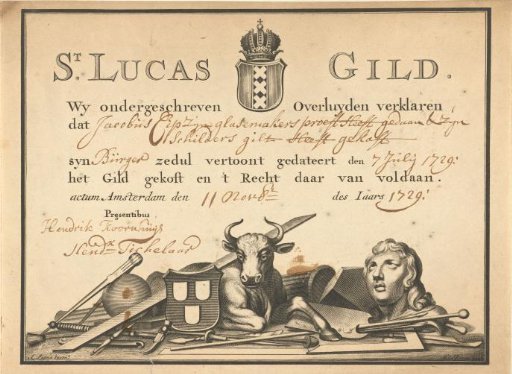 St. LUCAS GILD.
Wy ondergeschreven Overluyden verklaren
dat Jacobüs glasemakers proeft Heeft gedaan & Zyn
Schilders gilt Heeft gekoft
syn Bürger zedul vertoont gedateert den 7 Julij 1729.
het Gild gekoft en 't Recht daar van voldaan.
actum Amsterdam den 11 Novemb. des Iaars 1729.
Presentibus
Hendrik
Hendk